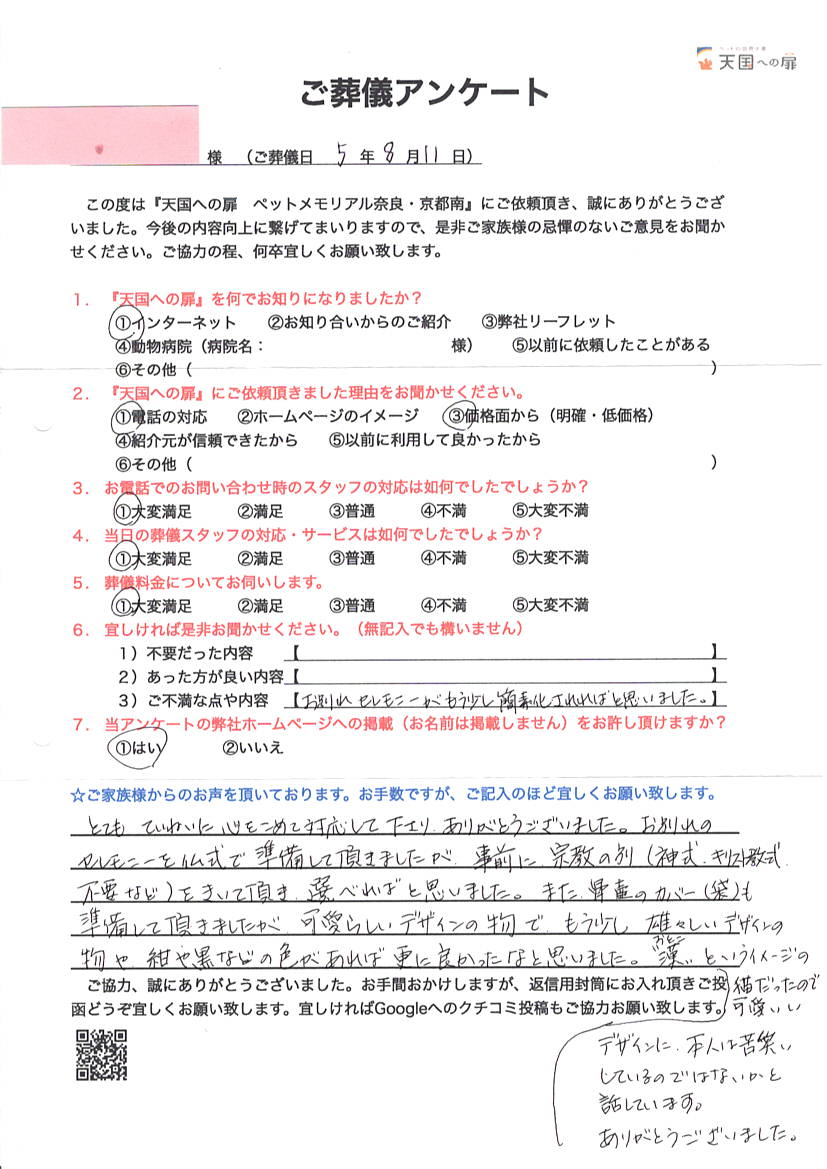 天国への扉
ご葬儀アンケート
様　（ご葬儀日　5 年 8 月 11 日）
この度は『天国への扉　ペットメモリアル奈良・京都南』にご依頼頂き、誠にありがとうござ
いました。今後の内容向上に繋げてまいりますので、是非ご家族様の忌憚のないご意見をお聞か
せください。ご協力の程、何卒宜しくお願い致します。
1．『天国への扉』を何でお知りになりましたか？
①インターネット　②お知り合いからのご紹介　③弊社リーフレット
④動物病院（病院名：　様）　⑤以前に依頼したことがある
⑥その他（　）
2．『天国への扉』にご依頼頂きました理由をお聞かせください。
①電話の対応　②ホームページのイメージ　③価格面から（明確・低価格）
④紹介元が信頼できたから　⑤以前に利用して良かったから
⑥その他（　）
3．お電話でのお問い合わせ時のスタッフの対応は如何でしたでしょうか？
①大変満足　②満足　③普通　④不満　⑤大変不満
4．当日の葬儀スタッフの対応・サービスは如何でしたでしょうか？
①大変満足　②満足　③普通　④不満　⑤大変不満
5．葬儀料金についてお伺いします。
①大変満足　②満足　③普通　④不満　⑤大変不満
6．宜しければ是非お聞かせください。（無記入でも構いません）
1）不要だった内容　【　】
2）あった方が良い内容【　】
3）ご不満な点や内容　【お別れセレモニーがもう少し簡素化されればと思いました。】
7．当アンケートの弊社ホームページへの掲載（お名前は掲載しません）をお許し頂けますか？
①はい　②いいえ
☆ご家族様からのお声を頂いております。お手数ですが、ご記入のほど宜しくお願い致します。
とても ていねいに 心をこめて対応して下さり、ありがとうございました。お別れの
セレモニーを仏式で準備して頂きましたが、事前に、宗教の別（神式、キリスト教式、
不要など）をきいて頂き、選べればと思いました。また、骨壷のカバー（袋）も
準備して頂きましたが、可愛らしいデザインの物で、もう少し雄々しいデザインの
物や、紺や黒などの色があれば更に良かったなと思いました。“漢”というイメージの
おとこ
ご協力、誠にありがとうございました。お手間おかけしますが、返信用封筒にお入れ頂きご投
猫だったので
函どうぞ宜しくお願い致します。宜しければGoogleへのクチコミ投稿もご協力お願い致します。
可愛いい
デザインに、本人は苦笑い
しているのではないかと
話しています。
ありがとうございました。